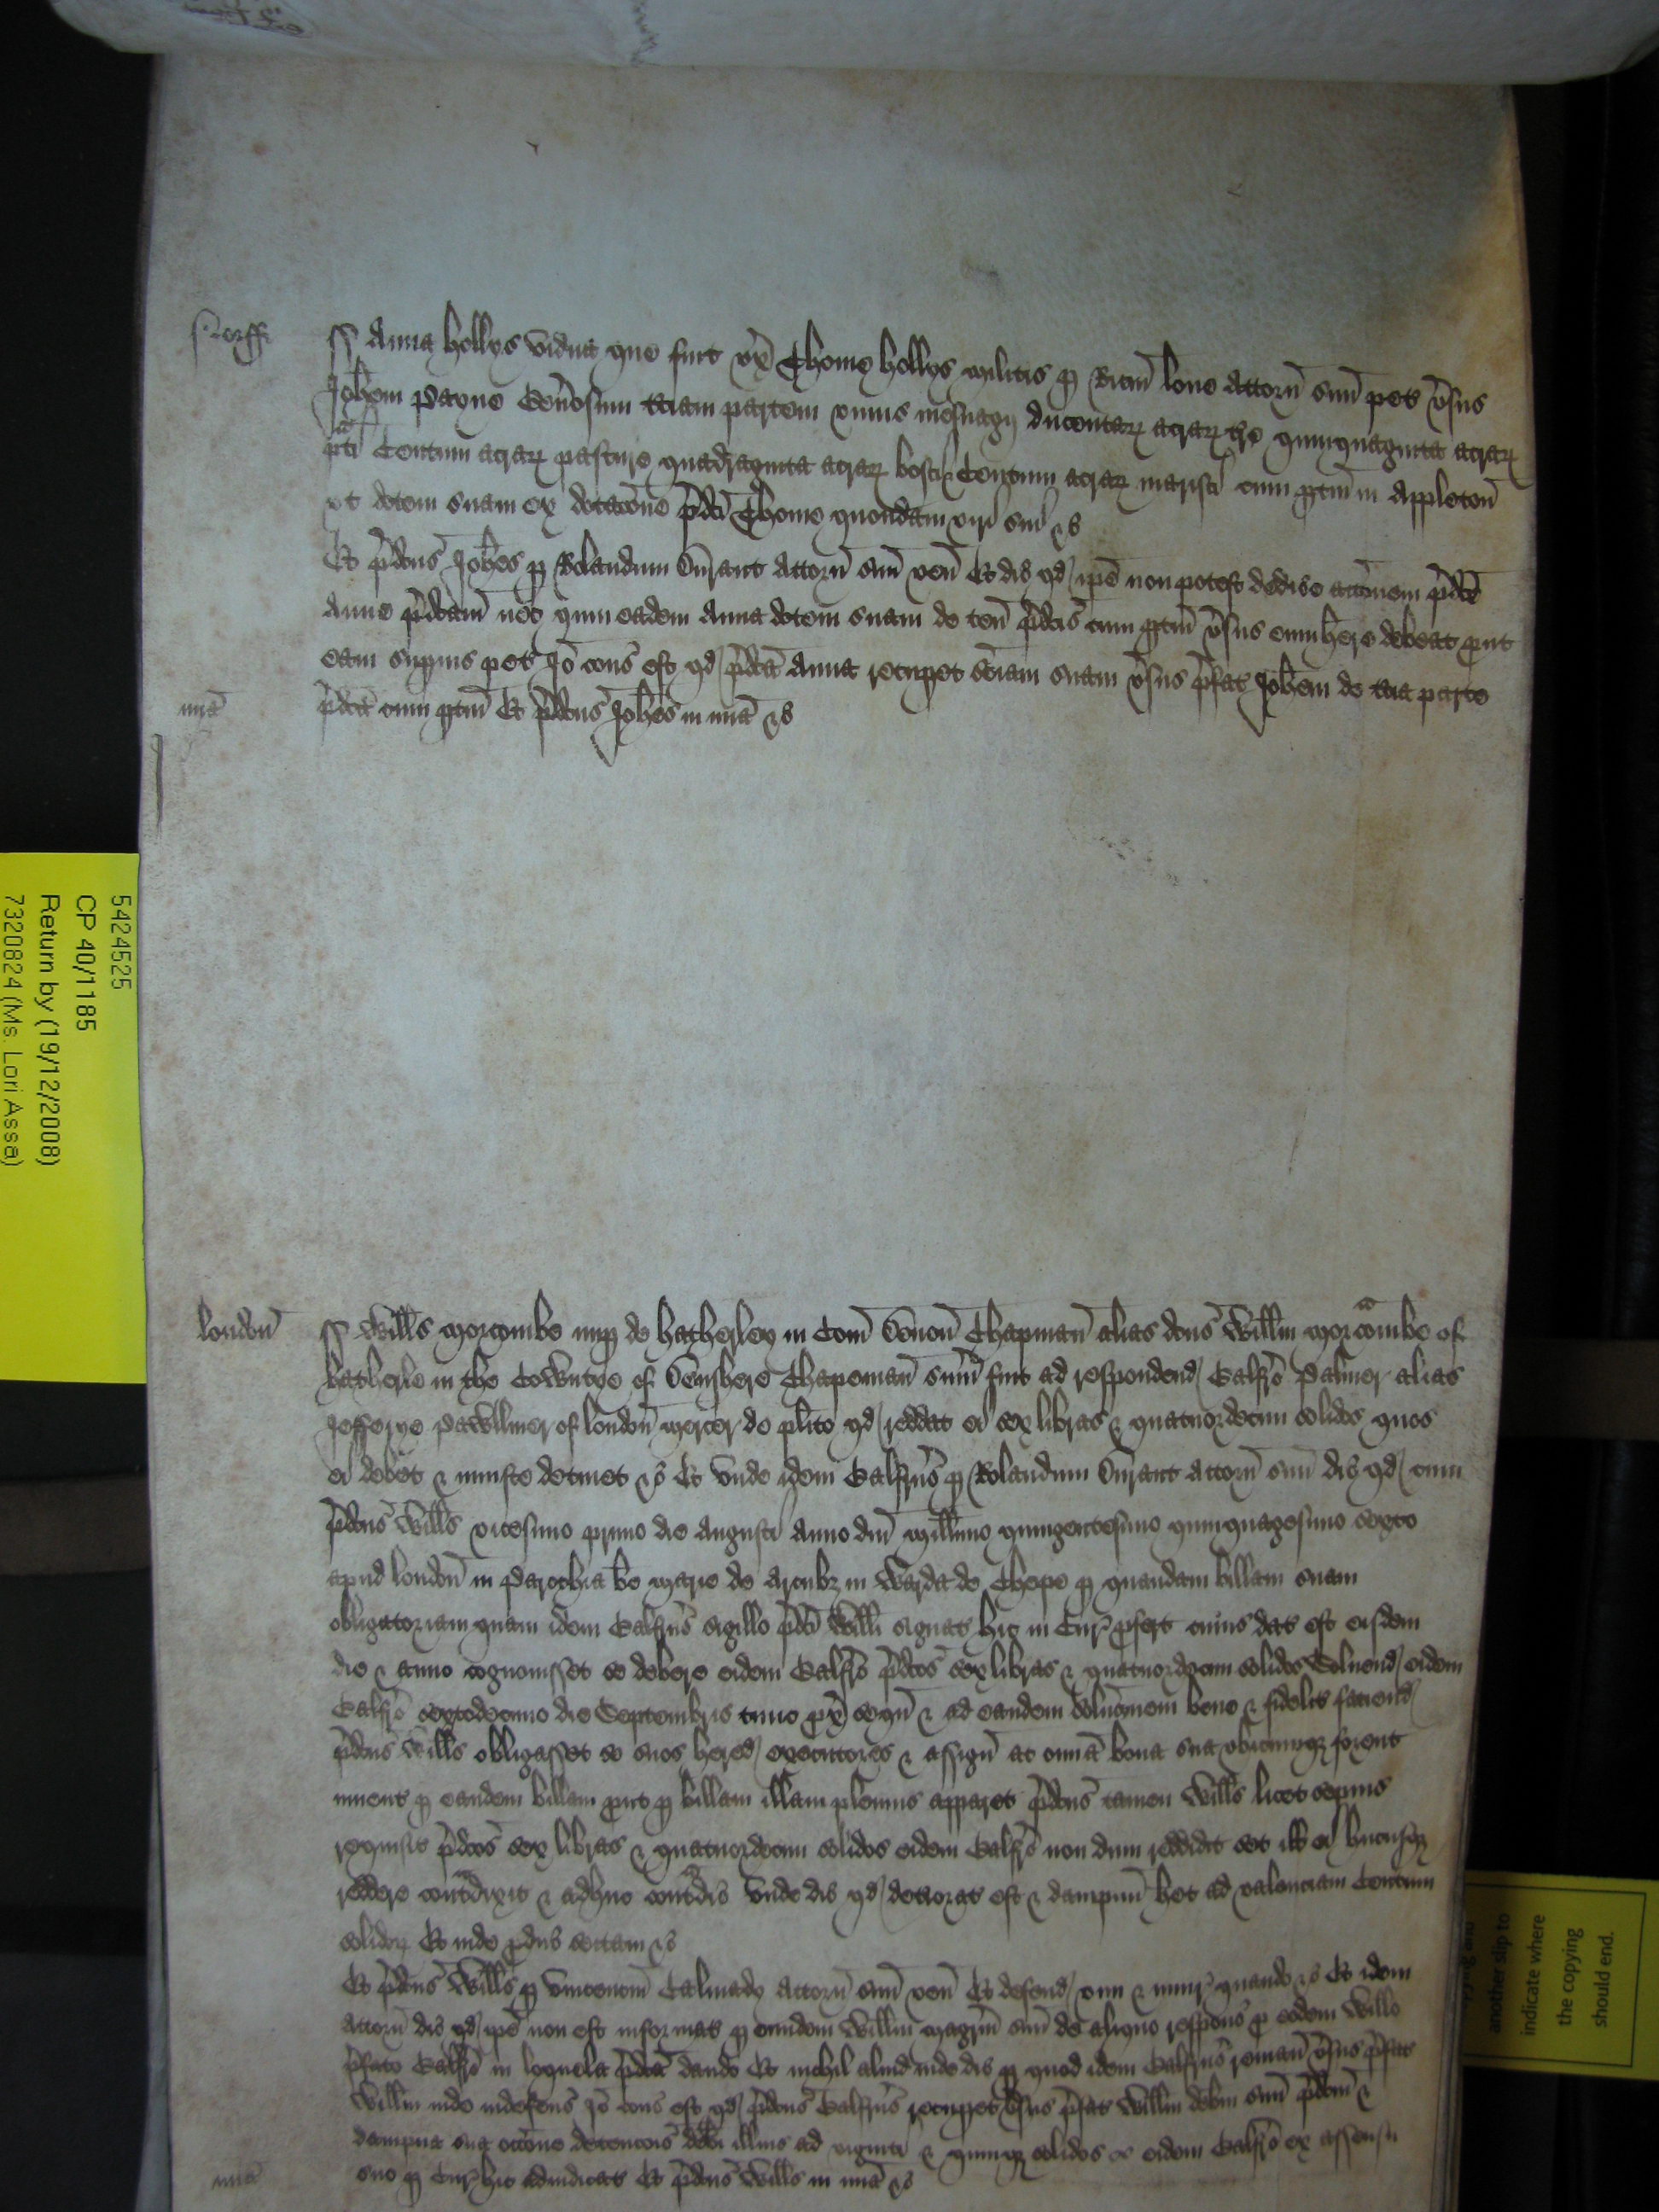 Norff
ss Anna hollys vidua que fuit ux Thome hollys militis p Ricm love Attorn suu pet vsus
Johem Payne Genosum tciam partem unius mesuagii ducentar acrar tre quinquaginta acrar
pti Centum acrar pasture quadraginta acrar bosci & Centum acrar marisci cum ptin in Appleton
ut dotem suam ex dotacone pdci Thome quondam viri sui &c
Et pdcus Johes p Rolandum Durant Attorn suu ven Et dic qd ipe non potest dedicere accionem pdce
Anne pdcam nec quin eadem Anna dotem suam de ten pdcis cum ptin vsus eum here debeat put
eam supius pet Io cons est qd pdca Anna recupet seisiam suam vsus pfat Johem de tcia parte
mia
pdca cum ptin Et pdcus Johes in mia &c
london
ss Willus Morcombe nup de hatherley in Com Devon Chapman alias dcus Willm Morcombe of
hatherle in the Cowntye of Denshere Chapeman sum fuit ad respondend Galfro Palmer alias
Jefferye Pawllmer of london mercer de plito qd reddat ei sex libras & quatuordecim solidos quos
ei debet & iniuste detinet &c Et unde idem Galfrus p Rolandum Durant Attorn suu dic qd cum
pdcus Willus vicesimo primo die Augusti Anno dni Millimo quingentesimo quinquagesimo sexto
apud london in Parochia be Marie de Arcubz in Warda de Chepe p quandam billam suam
obligatoriam quam idem Galfrus sigillo pdci Willi signat hic in Cur pfert cuius dat est eisdem
die & anno cognovisset se debere eidem Galfro pdcos sex libras & quatuordecim solidos Solvend eidem
Galfro sextodecimo die Septembris tunc px sequn & ad eandem solucionem bene & fidelit faciend
pdcus Willus obligasset se suos hered executores & assign ac omia bona sua ubicumqz forent
invent p eandem billam put p billam illam plenius apparet pdcus tamen Willus licet sepius
requisit pdcos sex libras & quatuordecim solidos eidem Galfro non dum reddidit set ill ei hucusqz
reddere contradixit & adhuc contradic Unde dic qd deteriorat est & dampnu het ad valenciam Centum
solidor Et inde pduc sectam &c
Et pdcus Willus p Vincencm Calmady Attorn suu ven Et defend vim & iniur quando &c Et idem
Attorn dic qd ipe non est informat p eundem Willm magrm suu de aliquo respons p eodem Willo
pfato Galfro in loquela pdca dando Et nichil aliud inde dic p quod idem Galfrus reman vsus pfat
Willm inde indefens Io cons est qd pdcus Galfrus recupet vsus pfat Willm debm suu pdcm &
dampna sua occone detencois debi illius ad viginti & quinqz solidos eidem Galfro ex assensu
mia
suo p Cur hic adiudicat Et pdcus Willus in mia &c
5424525
CP 40/1185
Return by (19/12/2008)
7320824 (Ms. Lori Assa)
another slip to
indicate where
the copying
should end.